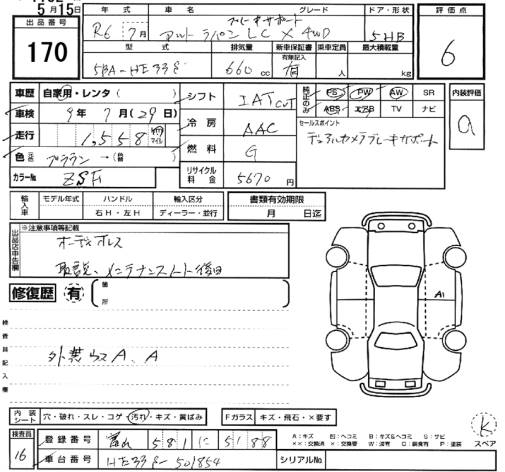 5月15日
出品番号 170
年式 車名 グレード ドア・形状 評価点
R6年7月 アルトラパンLC X 4WD 5HB 6
型式 排気量 新車保証書 乗車定員 最大積載量
有無記入
5BA-HE33S 660cc 有 人 kg
車歴 自家用・レンタ( ) シフト IAT CVT 純正のみ PS PW AW SR 内装評価
車検 9年7月(29日) 冷房 AAC ABS エアB TV ナビ a
走行 1,558 km マイル 燃料 G セールスポイント
デュアルカメラブレーキサポート
色(色替) ブラウン→(前 ) リサイクル料金 5670円
カラーNo ZSF
輸入車 モデル年式 ハンドル 輸入区分 書類有効期限
右H・左H ディーラー・並行 月 日迄
出品店申告欄 ※注意事項等記載
オーディオレス
取説、メンテナンスノート後日
修復歴 有 箇所
検査員記入欄
外装ウスA、A
A1
内装シート 穴・破れ・スレ・コゲ 汚れ・キズ・黄ばみ Fガラス キズ・飛石・×要す
検査員 16
登録番号 581 に 5188
車台番号 HE33S-501854 シリアルNo.
A:キズ E:ヘコミ B:キズ&ヘコミ S:サビ
××:交換済 ×:交換要 W:波有 C:腐食有 P:塗装
K スペア